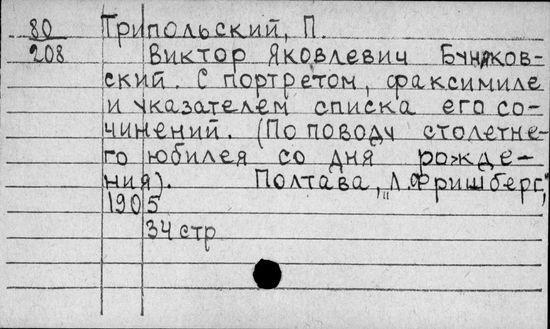 80 Трипольский, П.
208 Виктор Яковлевич Буняков-
ский. С портретом, факсимиле
и указателем списка его со-
чинений. (По поводу столетне-
го юбилея со дня рожде-
ния). Полтава, „Л. Фришберг,"
1905
34 стр